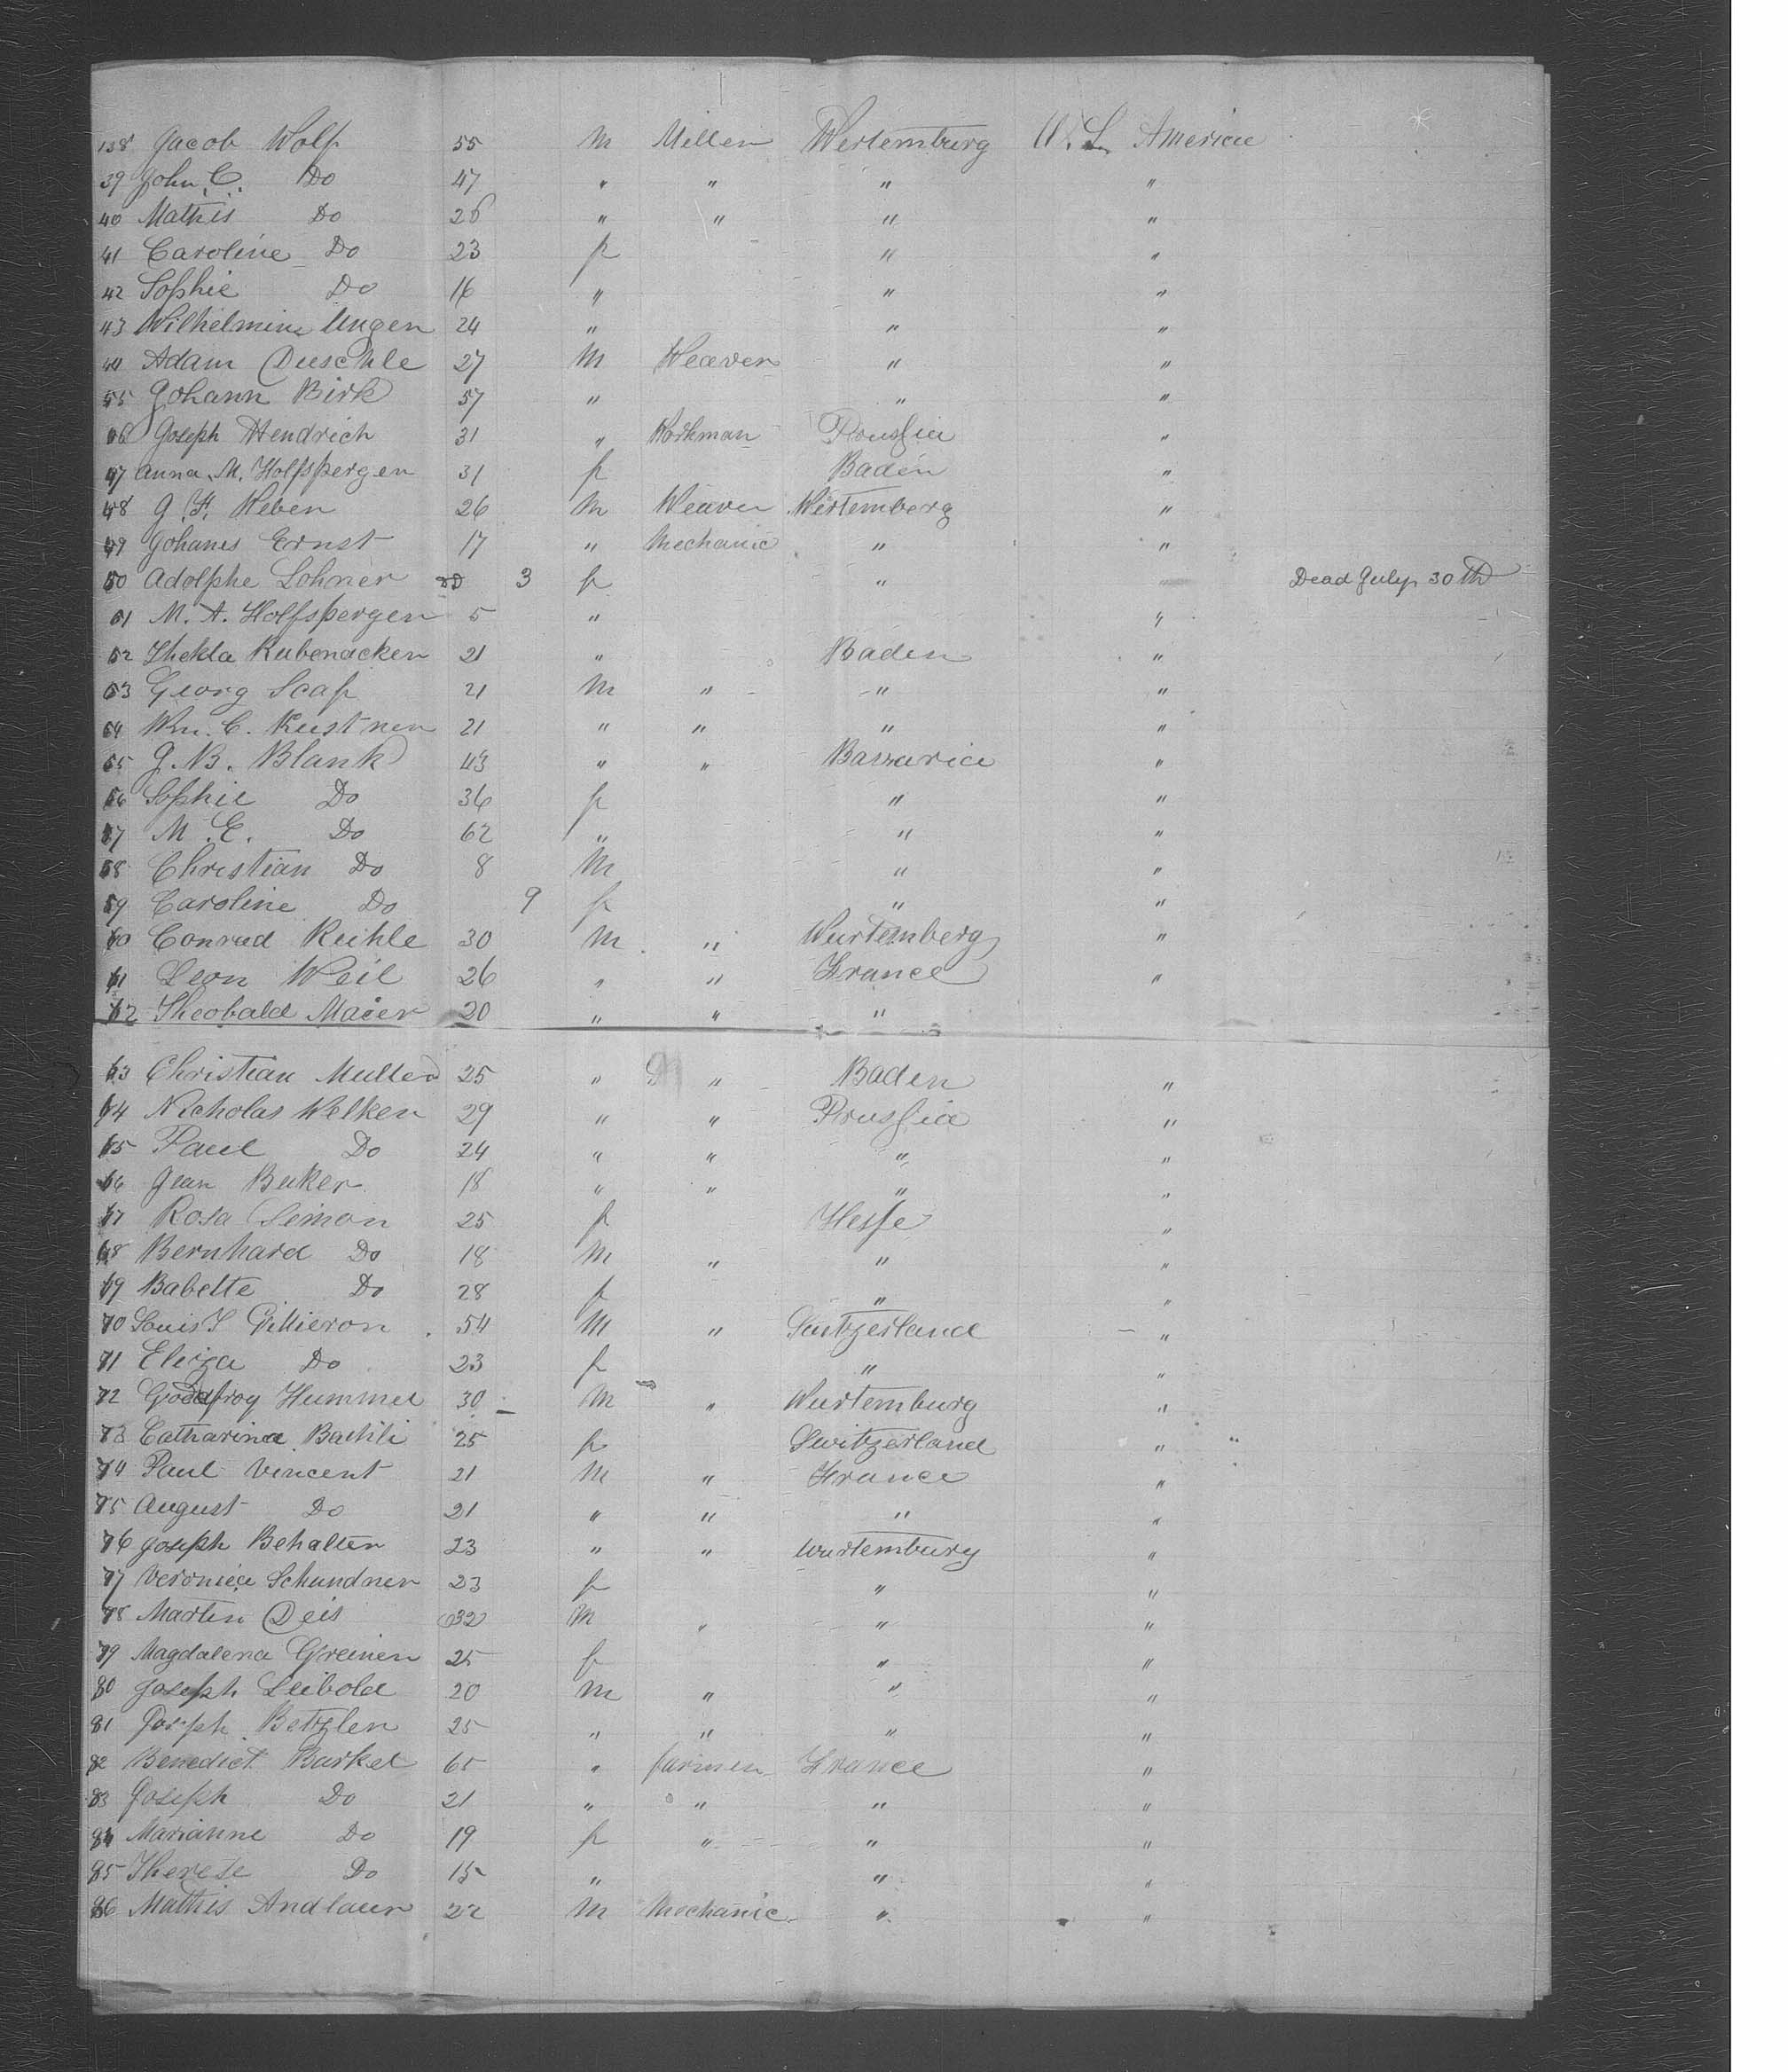 138 Jacob Wolf 55 M Miller Wertemburg U. S. America
39 John C. Do 47 " " " "
40 Mathis Do 26 " " " "
41 Caroline Do 23 f " "
42 Sophie Do 16 " " "
43 Wilhelmine Unger 24 " " "
44 Adam Duschle 27 M Weaver " "
45 Johann Birk 57 " " "
46 Joseph Hendrich 31 " Workman Prussia "
47 Anna M. Holfsperger 31 f Baden "
48 G. F. Weber 26 M Weaver Wirtemberg "
49 Johanes Ernst 17 " Mechanic " "
50 Adolphe Lohner 3 f " " Dead July 30th
51 M. A. Holfsperger 5 " "
52 Thekla Rubenacker 21 " Baden "
53 Georg Scaf 21 M " " "
54 Wm. C. Kustner 21 " " " "
55 J. B. Blank 43 " " Bavaria "
56 Sophie Do 36 f " "
57 M. E. Do 62 " " "
58 Christian Do 8 M " "
59 Caroline Do 9 f " "
60 Conrad Reihle 30 M " Wurtemberg "
61 Leon Weil 26 " " France "
62 Theobald Maier 20 " " "
63 Christian Muller 25 " " Baden "
64 Nicholas Welker 29 " " Prussia "
65 Paul Do 24 " " " "
66 Jean Beker 18 " " " "
67 Rosa Simon 25 f Hesse "
68 Bernhard Do 18 M " " "
69 Babette Do 28 f " "
70 Louis S Gillieron 54 M " Switzerland "
71 Eliza Do 23 f " "
72 Godfroy Hummel 30 M " Wurtemburg "
73 Catharina Bachli 25 f Switzerland " "
74 Paul Vincent 21 M " France "
75 August Do 21 " " " "
76 Joseph Behalter 23 " " Wurtemburg "
77 Veronica Schundner 23 f " "
78 Martin Deis 32 M " " "
79 Magdalena Greiner 25 f " "
80 Joseph Leibold 20 M " " "
81 Joseph Betzler 25 " " " "
82 Benedict Barkel 65 " farmer France "
83 Joseph Do 21 " " " "
84 Marianne Do 19 f " " "
85 Therese Do 15 " " "
86 Mathis Andlaur 22 M Mechanic " "